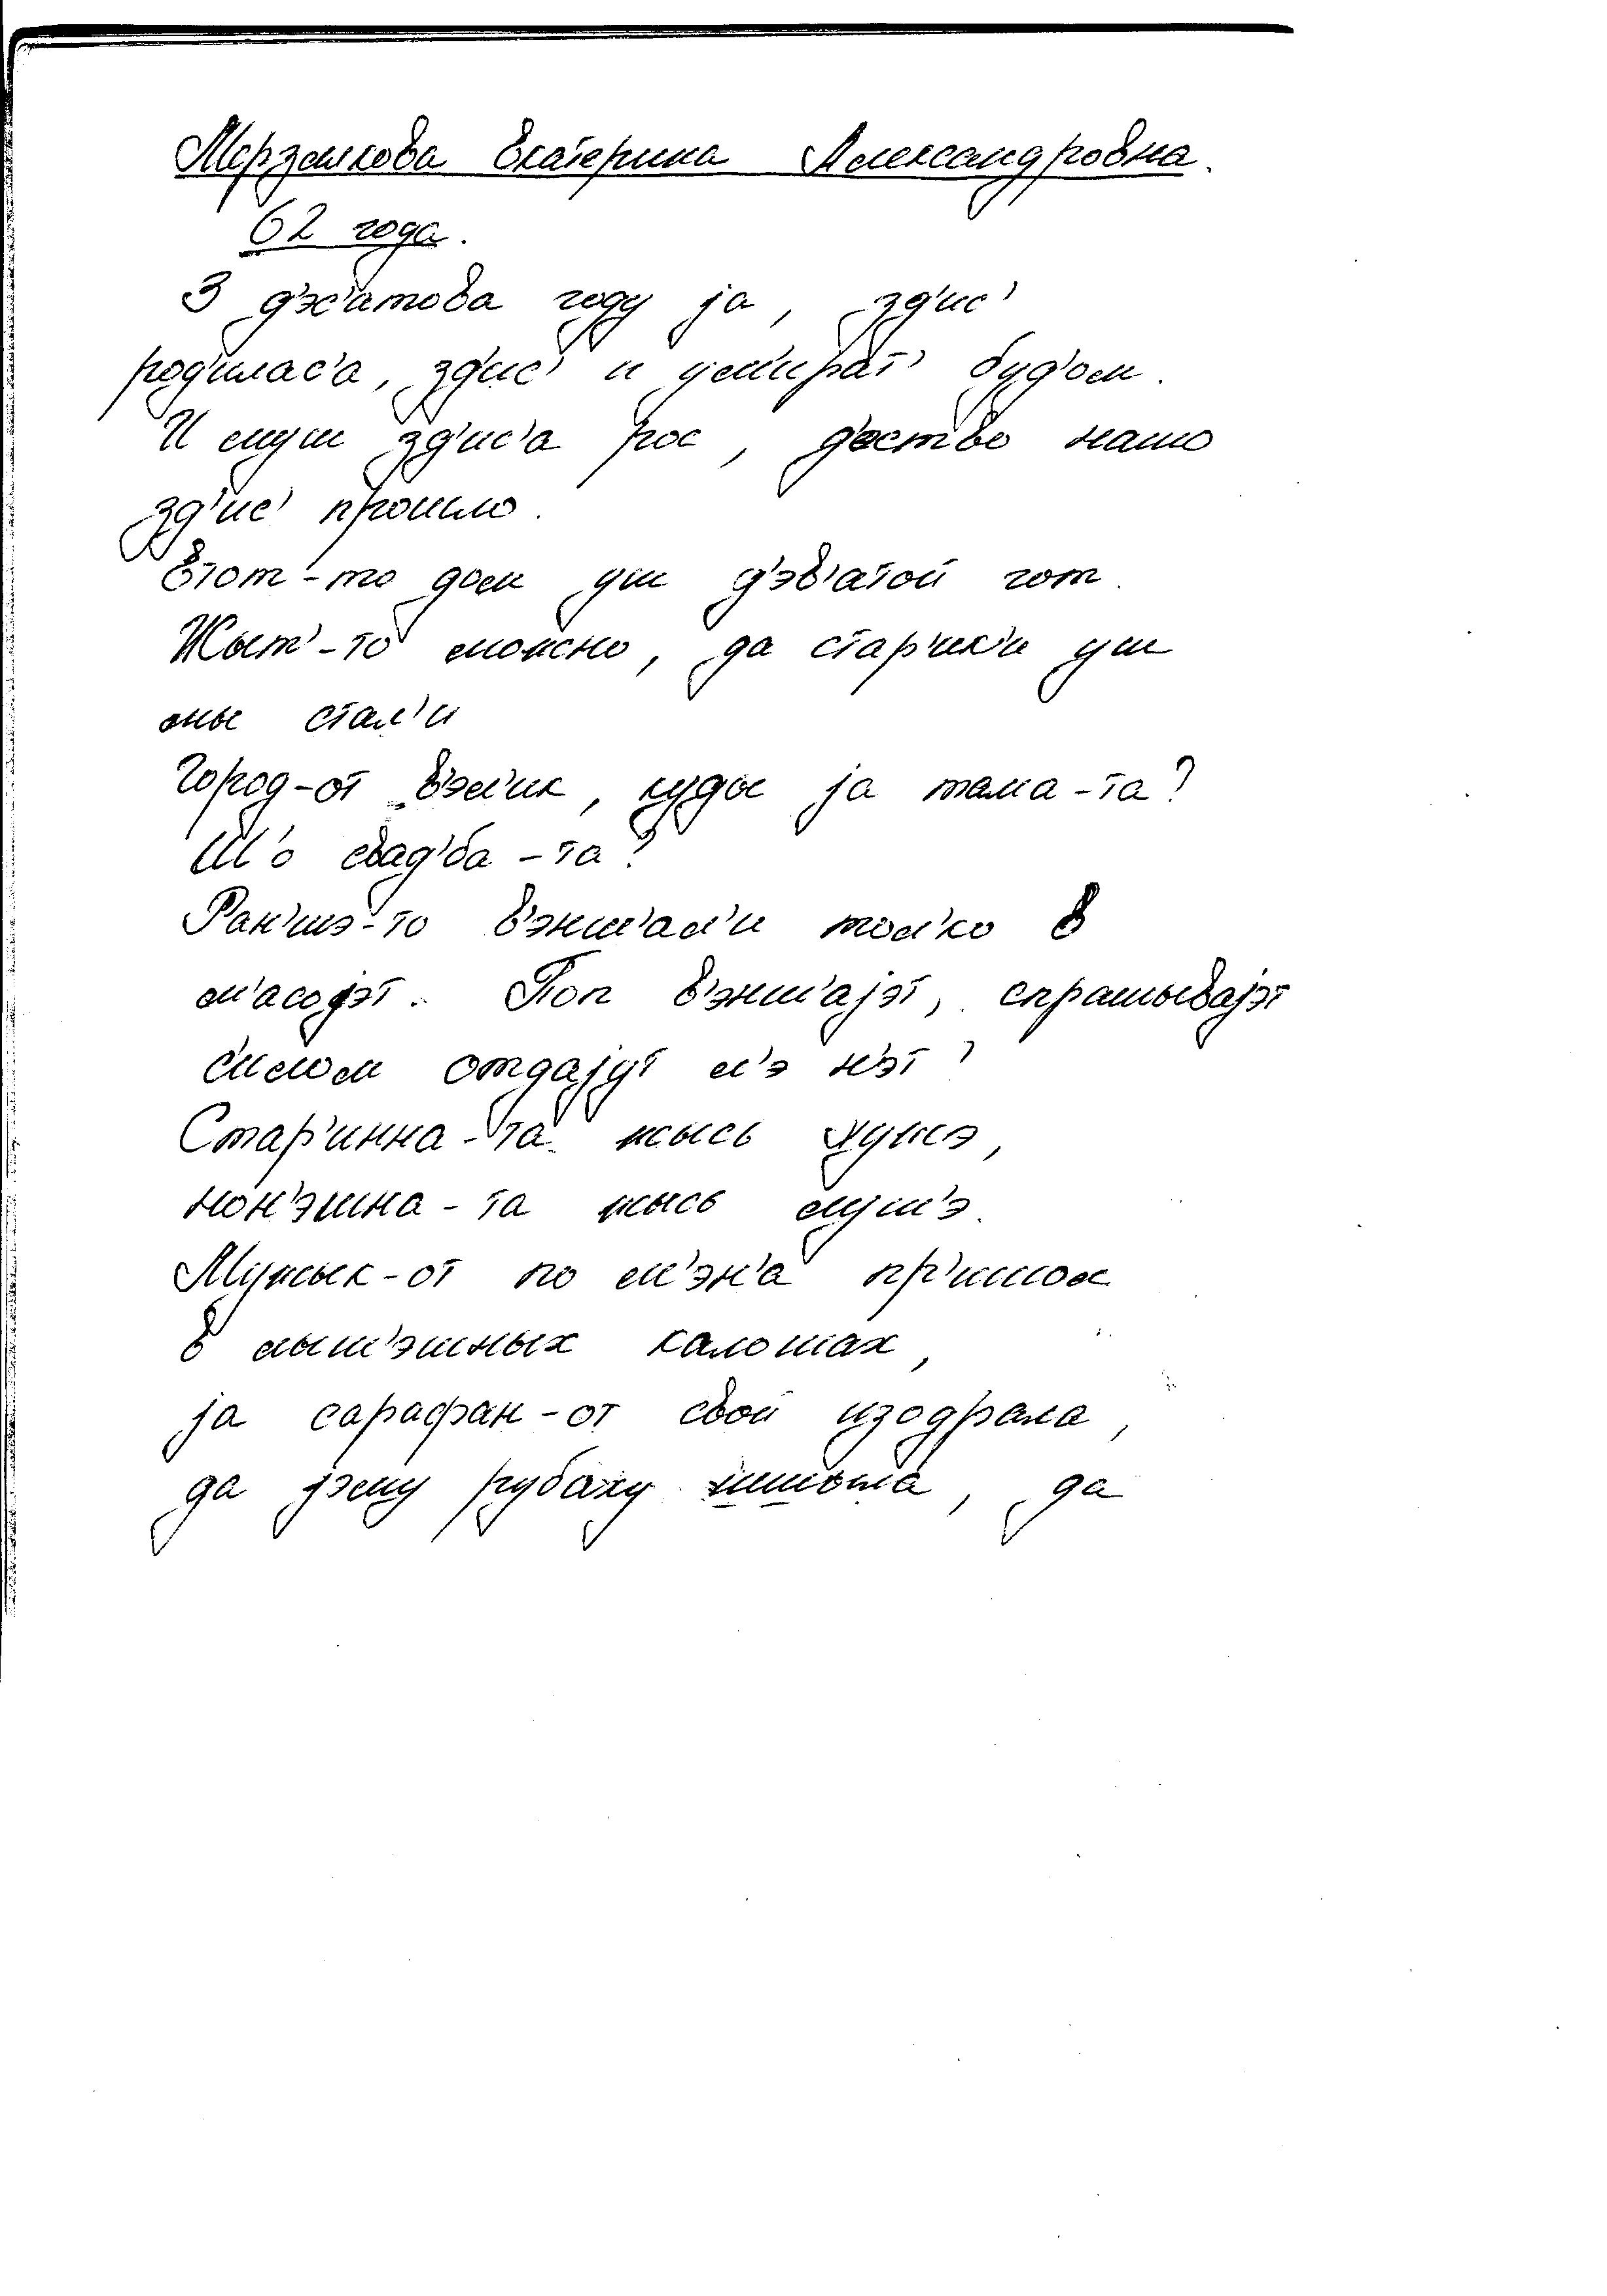 Мерзлякова Екатерина Александровна.
62 года.
З д'эс'атова году ja, зд'ис'
род'илас'а, зд'ис' и ум'ират' буд'ом.
И муш зд'ис'а рос, д'ество нашо
зд'ис' прошло.
Этот-то дом уш д'эв'атой гот.
Жыт'-то можно, да стар'ик'и уш
мы стал'и
Город-от в'эл'ик, куды ja тама-та?
Ш'о свад'ба-та?
Ран'шэ-то в'энш'ал'и тол'ко в
м'асоjэт. Поп в'энш'аjэт, спрашываjэт
с'илом отдаjут л'э н'эт?
Стар'инна-та жысь хужэ,
нон'эшна-та жысь луш'э.
Мужык-от по м'эн'а пр'ишол
в лыш'эшных калошах,
ja сарафан-от свой изодрала,
да jэму рубаху шшыла, да